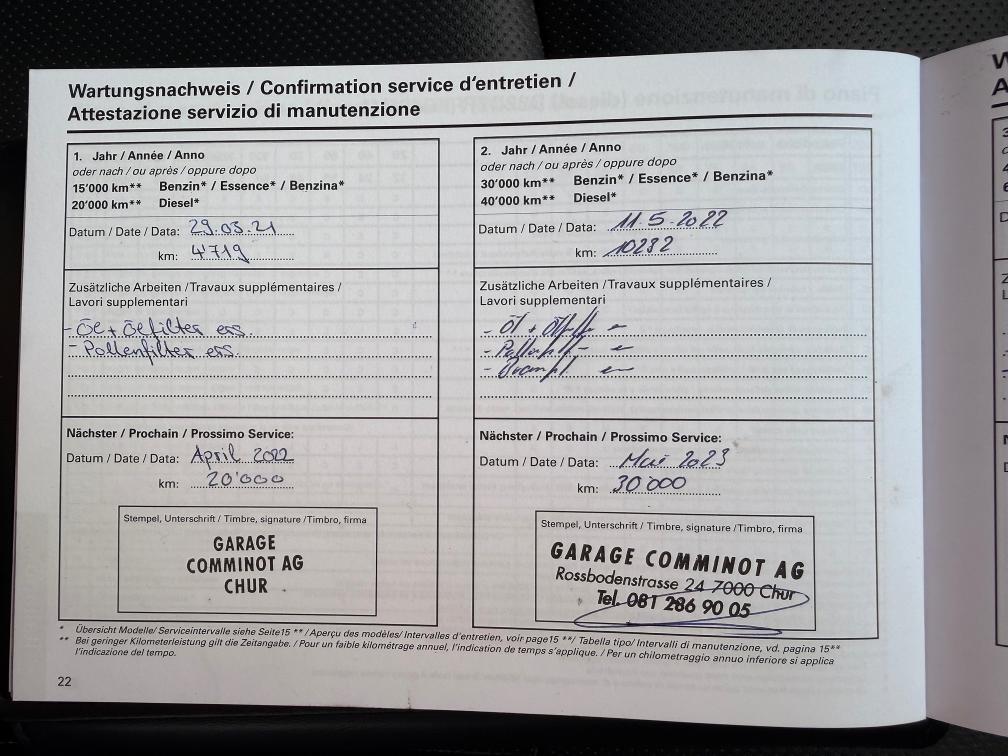 Wartungsnachweis / Confirmation service d'entretien /
Attestazione servizio di manutenzione
1. Jahr / Année / Anno
oder nach / ou après / oppure dopo
15'000 km** Benzin* / Essence* / Benzina*
20'000 km** Diesel*
Datum / Date / Data: 29.03.21
km: 4'719
Zusätzliche Arbeiten / Travaux supplémentaires /
Lavori supplementari
- Öl + Ölfilter ers.
- Pollenfilter ers.
Nächster / Prochain / Prossimo Service:
Datum / Date / Data: April 2022
km: 20'000
Stempel, Unterschrift / Timbre, signature / Timbro, firma
GARAGE
COMMINOT AG
CHUR
2. Jahr / Année / Anno
oder nach / ou après / oppure dopo
30'000 km** Benzin* / Essence* / Benzina*
40'000 km** Diesel*
Datum / Date / Data: 11.5.2022
km: 10232
Zusätzliche Arbeiten / Travaux supplémentaires /
Lavori supplementari
- Öl +
-
-
Nächster / Prochain / Prossimo Service:
Datum / Date / Data: Mai 2023
km: 30'000
Stempel, Unterschrift / Timbre, signature / Timbro, firma
GARAGE COMMINOT AG
Rossbodenstrasse 24 7000 Chur
Tel. 081 286 90 05
* Übersicht Modelle/ Serviceintervalle siehe Seite15 ** / Aperçu des modèles/ Intervalles d'entretien, voir page15 **/ Tabella tipo/ Intervalli di manutenzione, vd. pagina 15**
** Bei geringer Kilometerleistung gilt die Zeitangabe. / Pour un faible kilométrage annuel, l'indication de temps s'applique. / Per un chilometraggio annuo inferiore si applica
l'indicazione del tempo.
22